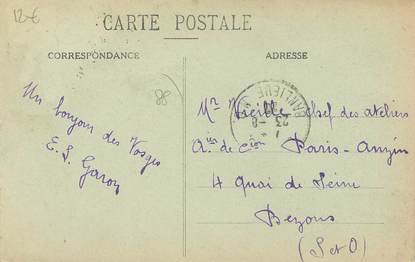 12€
CARTE POSTALE
CORRESPONDANCE
ADRESSE
88
Un bonjour des Vosges
E. S. Garon
Mr Vieille Chef des ateliers
de Paris-Anzin
4 Quai de Seine
Bezons
(S et O)